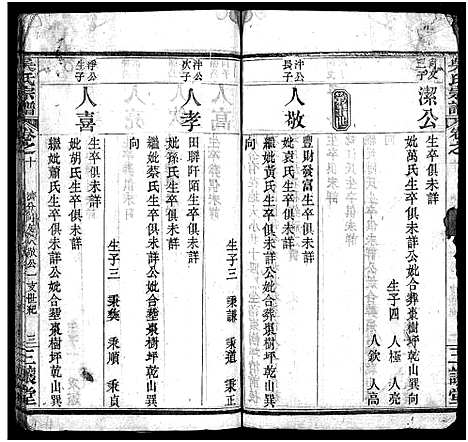 吳氏宗譜
潔公
生卒俱未詳
妣萬氏生卒俱未詳公妣合葬棗樹坪乾山巽向
生子四 人極 人亮
人欽 人高
沖公
次子
人敬
豐財發富生卒俱未詳
妣袁氏生卒俱未詳
繼妣黃氏生卒俱未詳公妣合葬棗樹坪乾山巽
向
沖公
次子
人孝
田聯阡陌生卒俱未詳
妣孫氏生卒俱未詳
繼妣蔡氏生卒俱未詳公妣合塟棗樹坪乾山巽
向
生子三 秉謙 秉道 秉正
淨公
生子
人喜
生卒俱未詳
妣胡氏生卒俱未詳
繼妣蕭氏生卒俱未詳公妣合塟棗樹坪乾山巽
向
生子三 秉奠 秉順 秉貞
吳氏宗譜
卷之十
公一支世紀
三
三讓堂